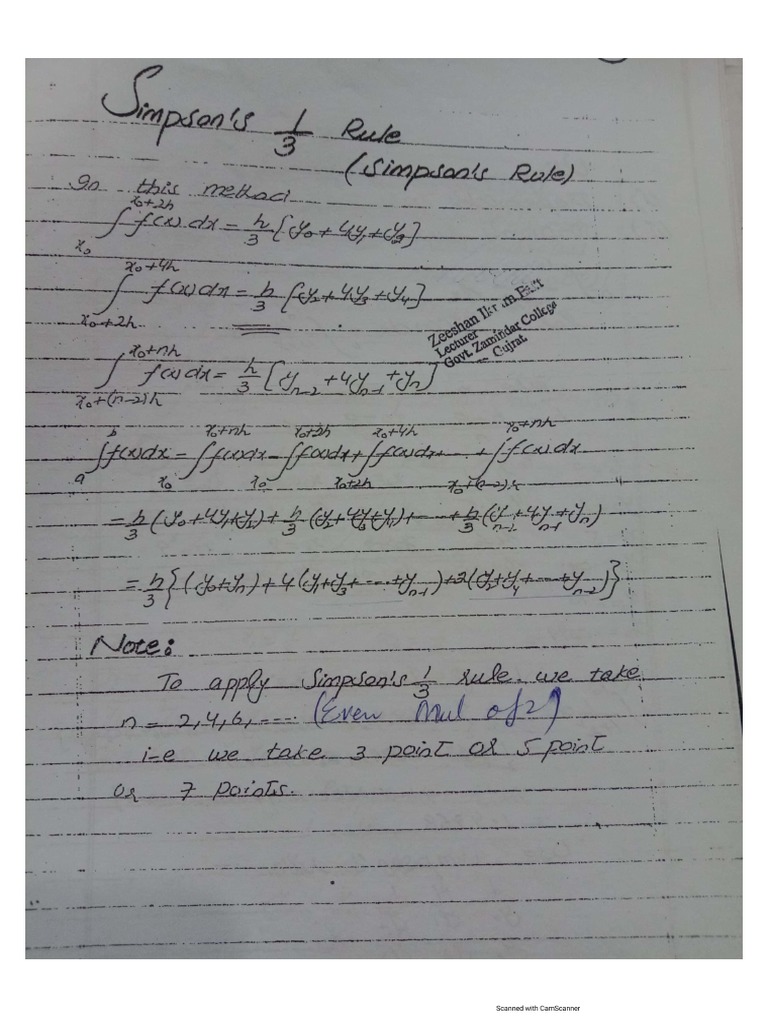 Simpson's 1/3 Rule
(Simpson's Rule)
In this method
∫_{x₀}^{x₀+2h} f(x) dx = h/3 [y₀ + 4y₁ + y₂]
∫_{x₀+2h}^{x₀+4h} f(x) dx = h/3 [y₂ + 4y₃ + y₄]
Zeeshan
Lecturer
Govt. Zamindar College
Gujrat
∫_{x₀+(n-2)h}^{x₀+nh} f(x) dx = h/3 [y_{n-2} + 4y_{n-1} + y_n]
∫_a^b f(x) dx = ∫_{x₀}^{x₀+nh} f(x) dx = ∫_{x₀}^{x₀+2h} f(x) dx + ∫_{x₀+2h}^{x₀+4h} f(x) dx + ... + ∫_{x₀+(n-2)h}^{x₀+nh} f(x) dx
= h/3 (y₀ + 4y₁ + y₂) + h/3 (y₂ + 4y₃ + y₄) + ... + h/3 (y_{n-2} + 4y_{n-1} + y_n)
= h/3 {(y₀ + y_n) + 4(y₁ + y₃ + ... + y_{n-1}) + 2(y₂ + y₄ + ... + y_{n-2})}
Note:
To apply Simpson's 1/3 rule we take
n = 2, 4, 6, ... (Even Mul of 2)
i-e we take 3 point or 5 point
or 7 points.
Scanned with CamScanner